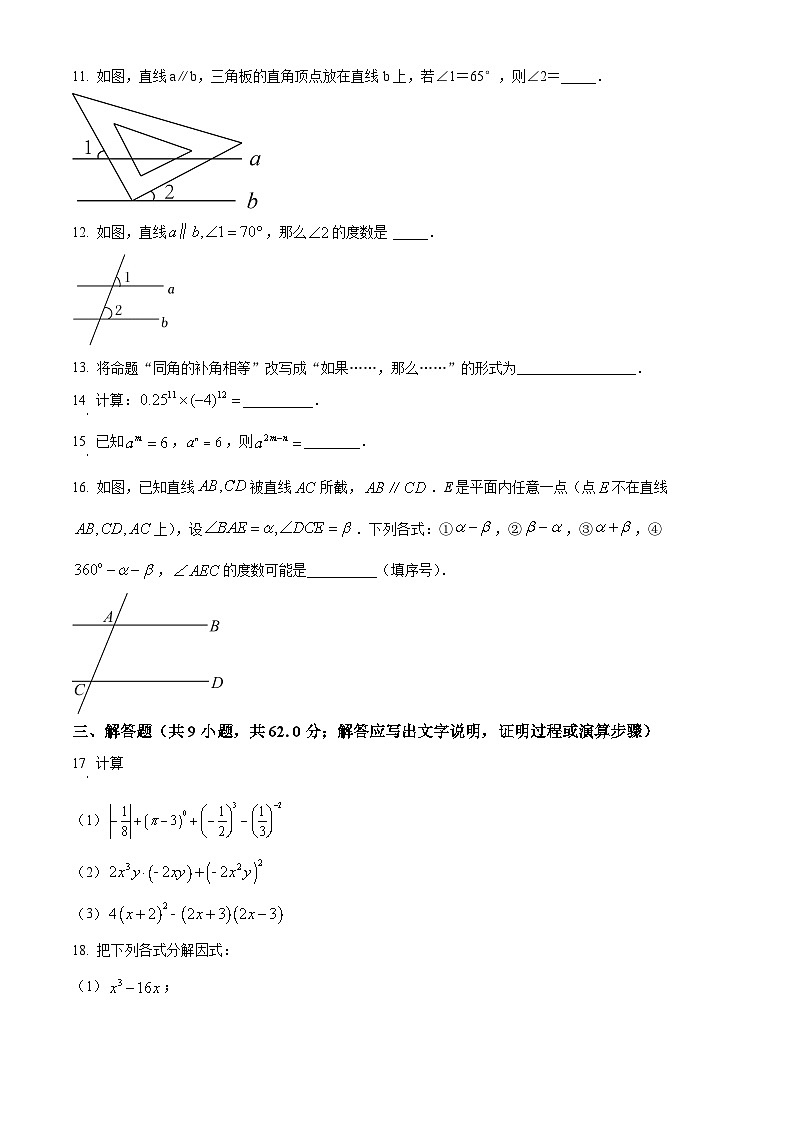 11. 如图，直线 a∥b，三角板的直角顶点放在直线 b 上，若∠1＝65°，则∠2＝_____．
1
a
2
b
12. 如图，直线a∥b,∠1=70°，那么∠2的度数是 _____．
1
a
2
b
13. 将命题“同角的补角相等”改写成“如果……，那么……”的形式为_________________．
14. 计算：0.25¹¹×(−4)¹²=__________．
15. 已知aᵐ=6，aⁿ=6，则a²ᵐ⁻ⁿ=________．
16. 如图，已知直线AB,CD被直线AC所截，AB∥CD．E是平面内任意一点（点E不在直线
AB,CD,AC上），设∠BAE=α,∠DCE=β．下列各式：①α−β，②β−α，③α+β，④
360°−α−β，∠AEC的度数可能是__________（填序号）．
A
B
C
D
三、解答题（共 9 小题，共 62.0 分；解答应写出文字说明，证明过程或演算步骤）
17. 计算
（1）|−1/8|+(π−3)⁰+(−1/2)³−(1/3)⁻²
（2）2x³y·(−2xy)+(−2x²y)²
（3）4(x+2)²−(2x+3)(2x−3)
18. 把下列各式分解因式：
（1）x³−16x；